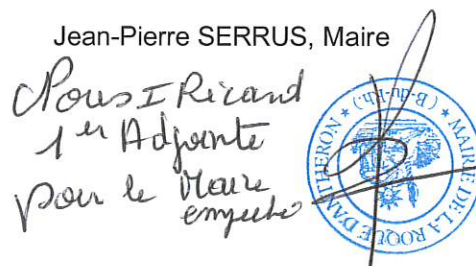 Jean-Pierre SERRUS, Maire
Nous I Ricard
1er Adjointe
pour le Maire
empeché
MAIRIE DE LA ROQUE D'ANTHERON * (B.-du-Rh.) *